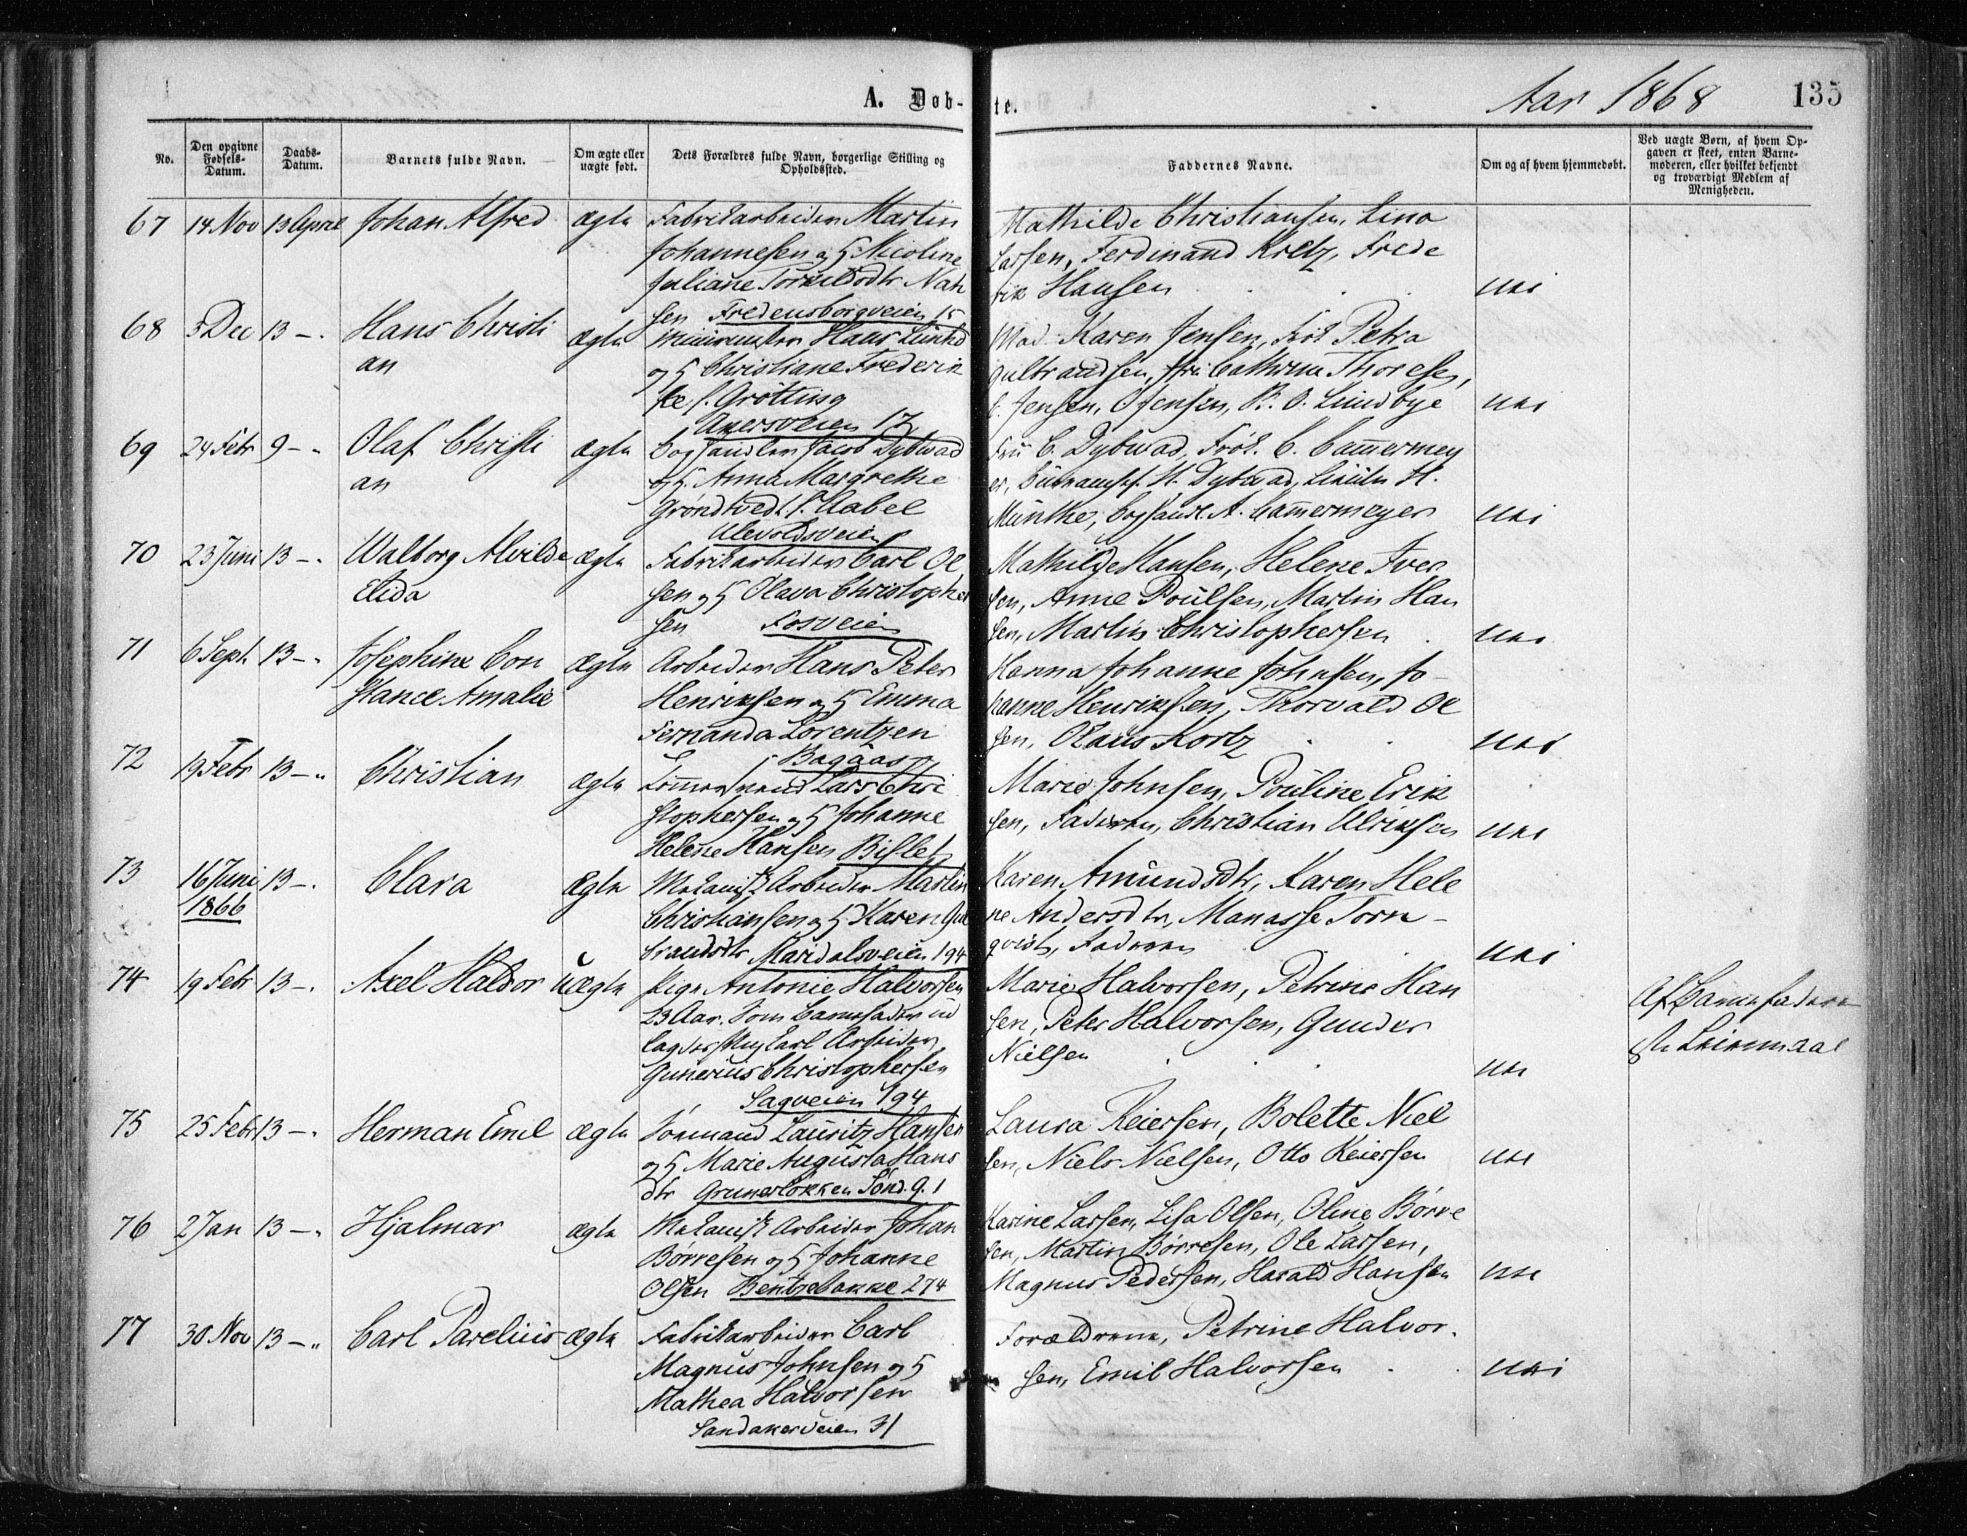 A. Døb-
te.
Aar 1868
135
No.
Den opgivne
Fødsels-
Datum.
Daabs-
Datum.
Barnets fulde Navn.
Om ægte eller
uægte født.
Dets Forældres fulde Navn, borgerlige Stilling og
Opholdssted.
Faddernes Navne.
Om og af hvem hjemmedøbt.
Ved uægte Børn, af hvem Op-
gaven er skeet, enten Barne-
moderen, eller hvilket bekjendt
og troværdigt Medlem af
Menigheden.
67 14 Nov 13 April Johan Alfred ægte Fabrikarbeider Martin
Johannesen og H Nicoline
Juliane Torkildsdtr Nah
sen Fredensborgveien 15
Mathilde Christiansen, Lina
Larsen, Ferdinand Kretz, Frede
rik Hansen
nei
68 3 Dec 13 – Hans Christi
an
ægte
Murmester Hans Lund
og H Christiane Frederik
ke f. Grötting
Akersveien 17
Mad. Karen Jensen, Frøk Petra
Gulbrandsen, Fru Cathrine Thoresen,
C. Jensen, O Jensen, B. O. Lundbye nei
69 24 Febr 9 – Olaf Christi
an
ægte
Boghandler Jacob Dybwad
og H. Anna Margrethe
Grøndtvedt f. Aabel
Ulevoldsveien
Fru C. Dybwad, Frøk. C. Cammermey
er, H. Dybwad, H.
Munthe, Boghandl A. Cammermeyer nei
70 23 Juni 13 – Walborg Alvilde
Elida
ægte
Fabrikarbeider Carl Ol
sen og H Olava Christopher
sen Fosveien
Mathilde Hansen, Helene Iver
sen, Anne Poulsen, Martin Han
sen, Martin Christophersen nei
71 6 Sept. 13 – Josephine Con
stance Amalie
ægte
Arbeider Hans Peter
Henriksen og H Emma
Fernanda Lorentzen
Bagaas
Hanna Johanne Johnsen, Jo-
hanne Henriksen, Thorvald Ol
sen, Olaus Kortz nei
72 19 Febr 13 – Christian ægte
Tømmermand Lars Chri
stophersen og H Johanne
Helene Hansen Bislet
Marie Johnsen, Pouline Erik
sen, Faderen, Christian Ulriksen nei
73 16 Juni
1866
13 – Clara ægte
Mekanisk Arbeider Martin
Christiansen og H Karen Gul
brandsdtr Maridalsveien 194
Karen Amundsdtr, Karen Hele
ne Andersdtr, Manasse Torn-
qvist, Faderen nei
74 19 Febr 13 – Axel Haldor uægte
Pige Antonie Halvorsen
23 Aar. Som Barnefader ud
lagdes Ungkarl Arbeider
Gunerius Christophersen
Sagveien 194
Marie Halvorsen, Petrine Han
sen, Peter Halvorsen, Gunder
Nielsen
nei
Af Barnefaderen
75 25 Febr 13 – Herman Emil ægte
Sømand Lauritz Hansen
og H Marie Augusta Hans
dtr Grünerløkken Sønd. g. 1
Laura Keiersen, Bolette Niel
sen, Niels Nielsen, Otto Keiersen nei
76 2 Jan 13 – Hjalmar ægte
Mekanisk Arbeider Johan
Børresen og H Johanne
Olsen Bentsebakke 274
Karine Larsen, Lisa Olsen, Oline Børre
sen, Martin Børresen, Ole Larsen,
Magnus Pedersen, Harald Hansen nei
77 30 Nov 13 – Carl Parelius ægte
Fabrikarbeider Carl
Magnus Johnsen og H
Mathea Halvorsen
Sandakerveien 31
Forældrene, Petrine Halvor-
sen, Emil Halvorsen nei